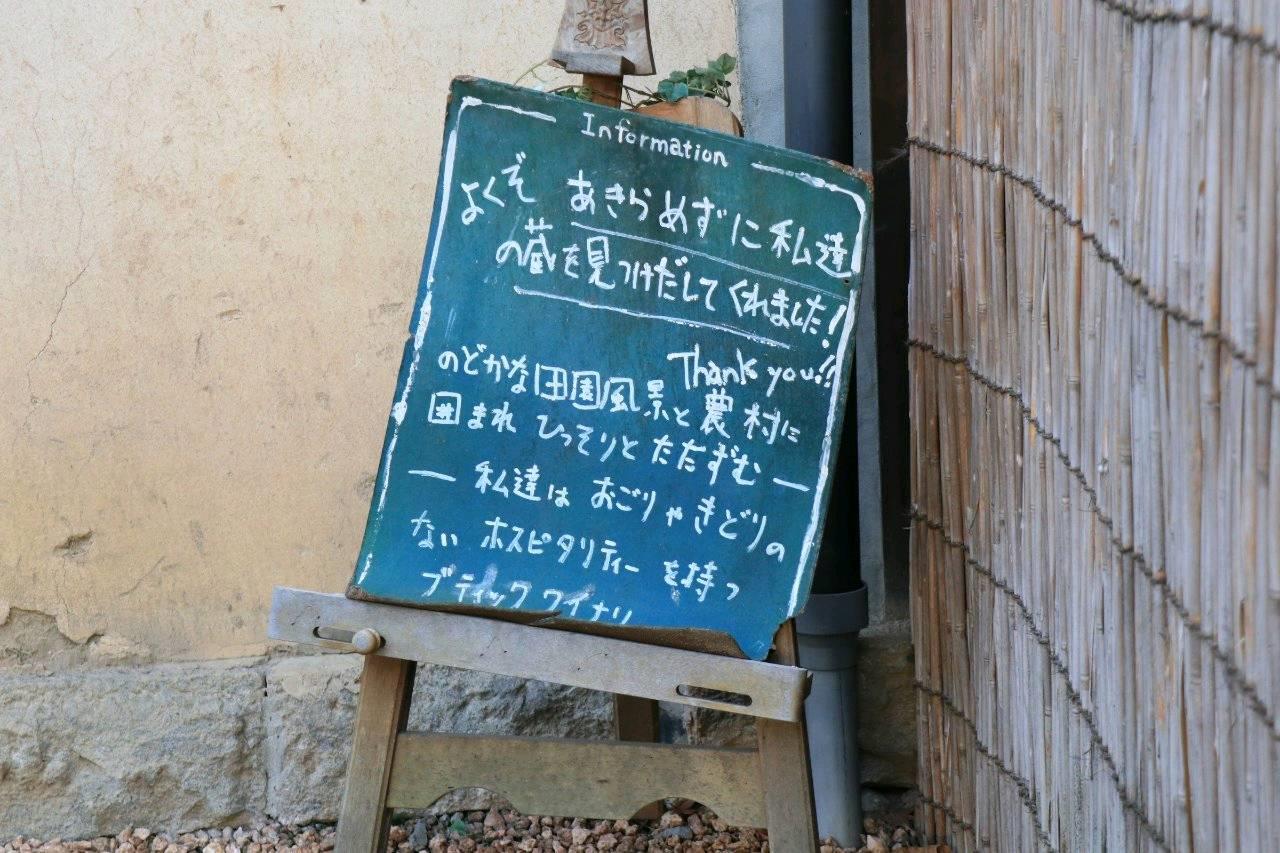 Information
よくぞ あきらめずに私達
の蔵を見つけだしてくれました!
Thank you!!
のどかな田園風景と農村に
囲まれ ひっそりと たたずむ
― 私達は おごりやきどりの
ない ホスピタリティー を持つ
ブティックワイナリ